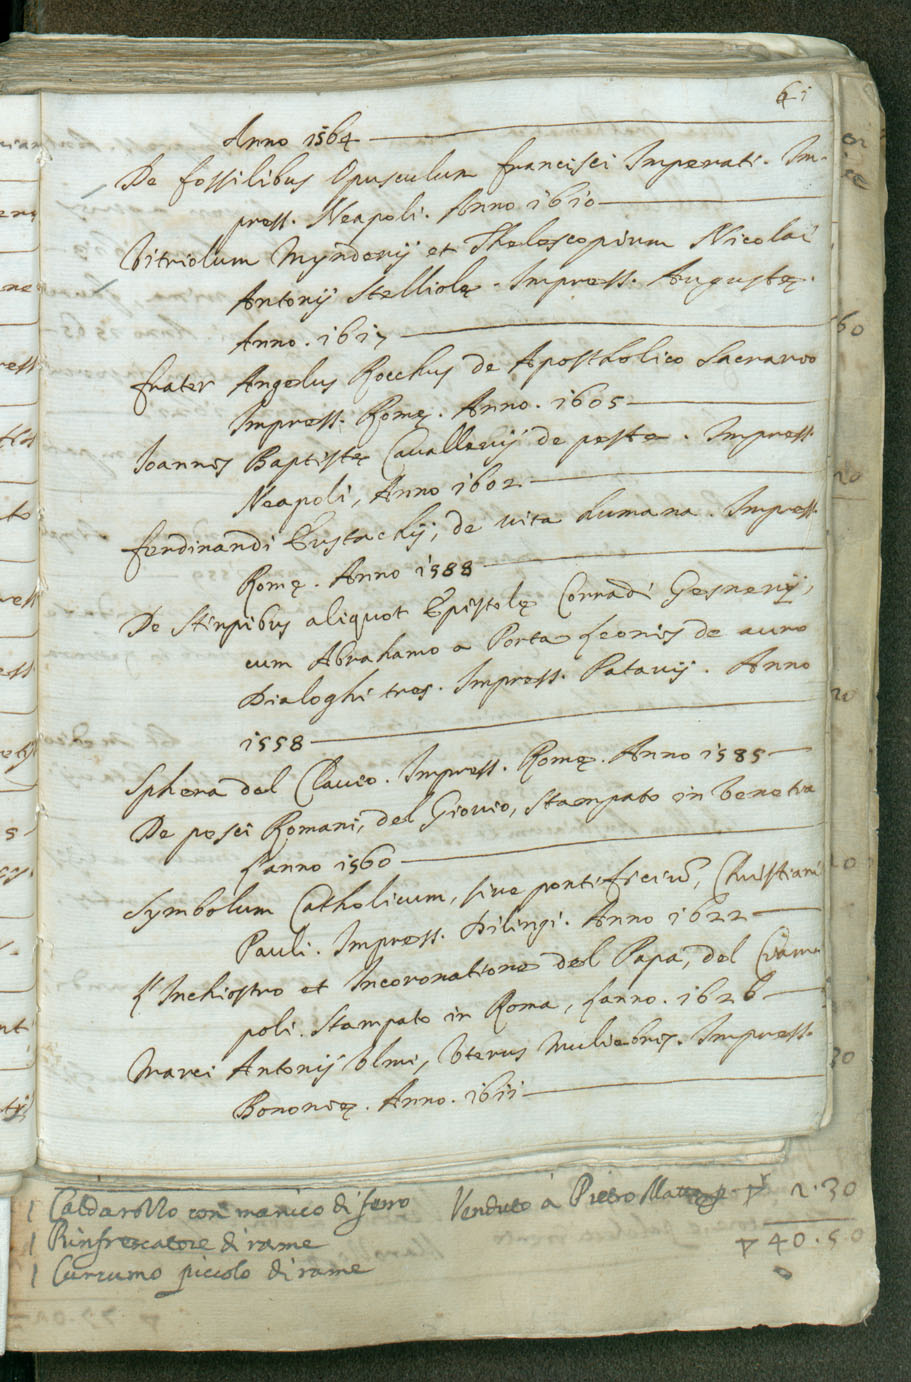 61
Anno 1564
De fossilibus Opusculum francisci Imperati. Im-
press. Neapoli. Anno 1610
Vitriolum Mynderij et Theloscopium Nicolai
Antonij Stelliolę. Impress. Augustę.
Anno. 1617
frater Angelus Rocchus de Apostholico Sacrario
Impress. Romę. Anno. 1605
Joannis Baptistę Cavallerij de peste. Impress.
Neapoli, Anno 1602
ferdinandi Eustachij, de vita humana. Impress.
Romę. Anno 1588
De Stirpibus aliquot Epistolę Conradi Gesnerij,
cum Abrahamo a Porta Leonis de auro
Dialoghi tres. Impress. Patavij. Anno
1558
Sphera del Clavio. Impress. Romę. Anno 1585
De pesci Romani, del Giovio, Stampato in Venetia
L'anno 1560
Symbolum Catholicum, sive pontificiũ, Christiani
Pauli. Impress. Dilingi. Anno 1622
L'Inchiostro et Incoronatione del Papa, del Ciam
poli. Stampato in Roma, L'anno. 1626
Marci Antonij Vlmi, Vterus Muliebris. Impress.
Bononię. Anno. 1611
1 Caldarozzo con manico di ferro Venduto à Pietro 2.30
1 Rinfrescatore di rame 40.50
1 Cuzzumo piccolo di rame